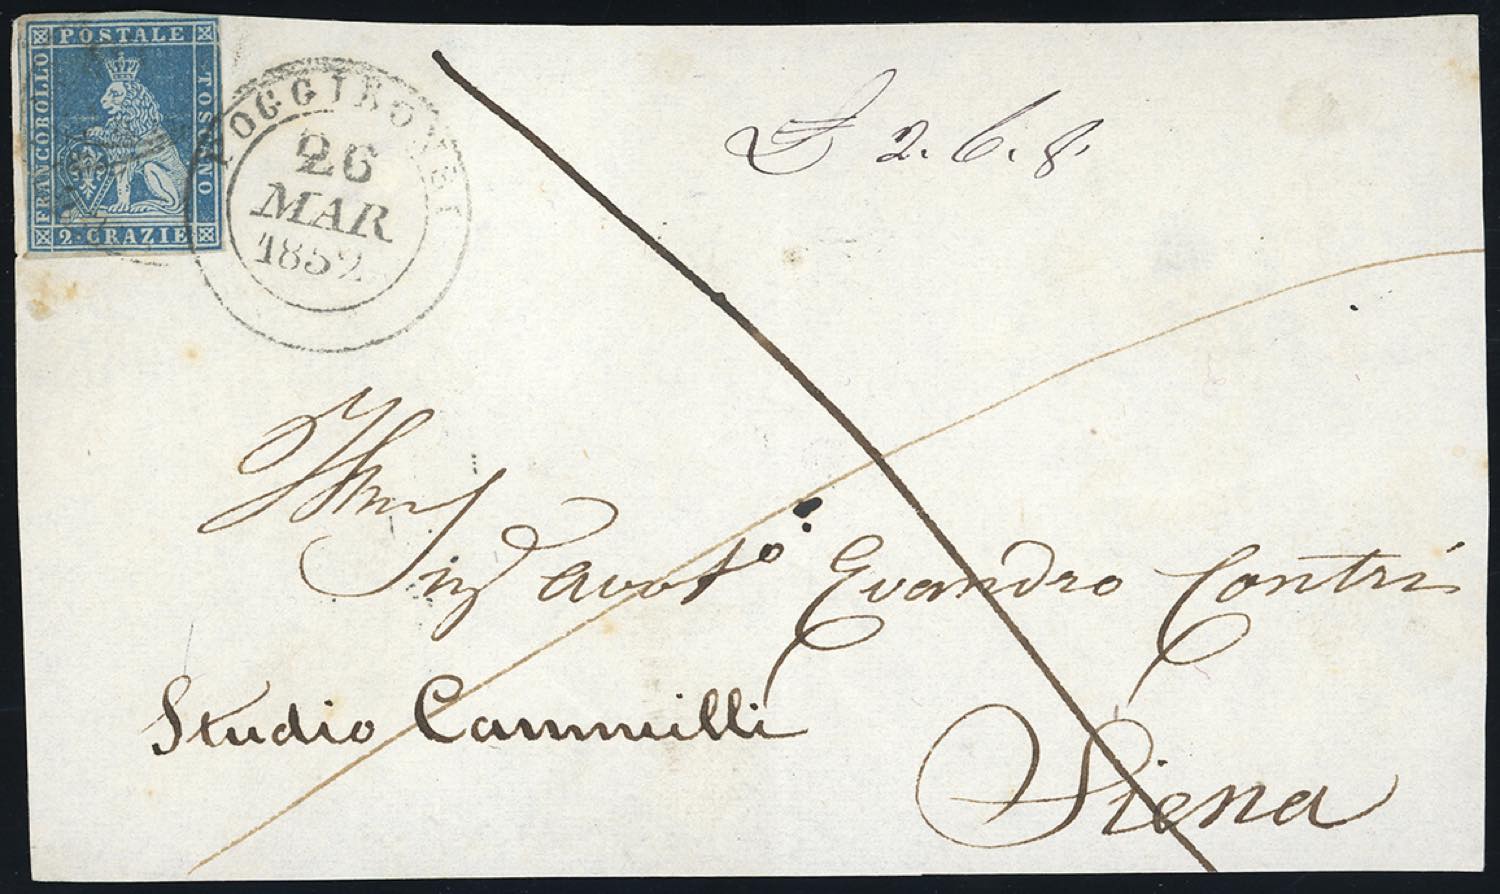 POSTALE
FRANCOBOLLO
TOSCANO
2·CRAZIE
POGGIBONSI
26
MAR
1852
£ 2.6.8.
Illmo
Sig avvto Evandro Contri
Studio Cammilli
Siena